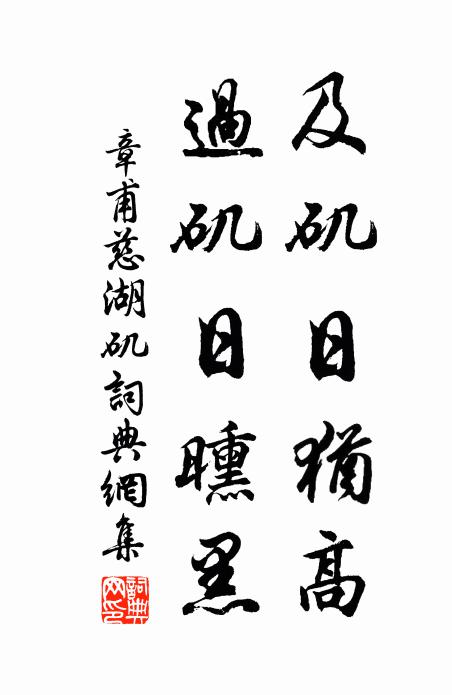 及矶日猶高
過矶日曛黑
章甫慈湖矶詞典網集
詞典網印